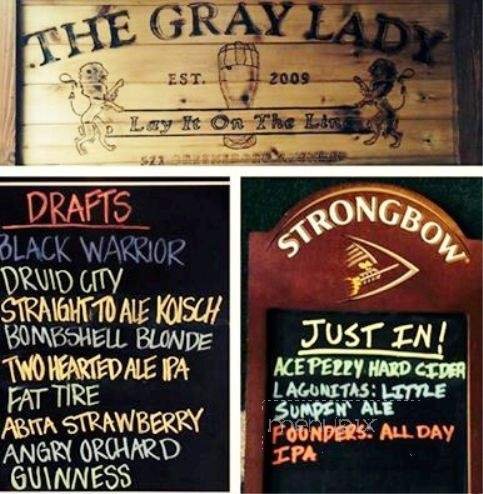 THE GRAY LADY
EST. 2009
Lay It On The Line
DRAFTS
BLACK WARRIOR
DRUID CITY
STRAIGHT TO ALE KOISCH
BOMBSHELL BLONDE
TWO HEARTED ALE IPA
FAT TIRE
ABITA STRAWBERRY
ANGRY ORCHARD
GUINNESS
STRONGBOW
JUST IN!
ACE PERRY HARD CIDER
LAGUNITAS: LITTLE
SUMPIN' ALE
FOUNDERS: ALL DAY
IPA
menupix